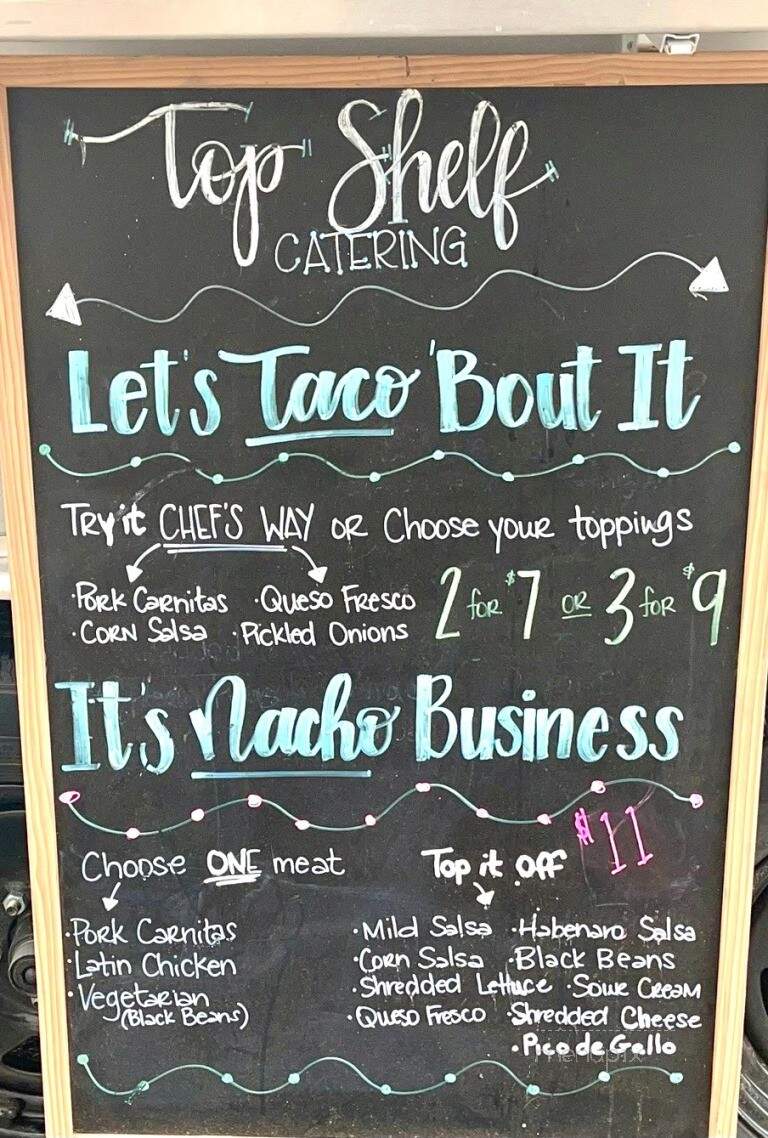 Top Shelf
CATERING
Let's Taco 'Bout It
Try it CHEF'S WAY OR Choose your toppings
·Pork Carnitas ·Queso Fresco
·Corn Salsa ·Pickled Onions
2 for $7 OR 3 for $9
It's Nacho Business
$11
Choose ONE meat
·Pork Carnitas
·Latin Chicken
·Vegetarian
(Black Beans)
Top it off
·Mild Salsa ·Habenaro Salsa
·Corn Salsa ·Black Beans
·Shredded Lettuce ·Sour Cream
·Queso Fresco ·Shredded Cheese
·Pico de Gallo